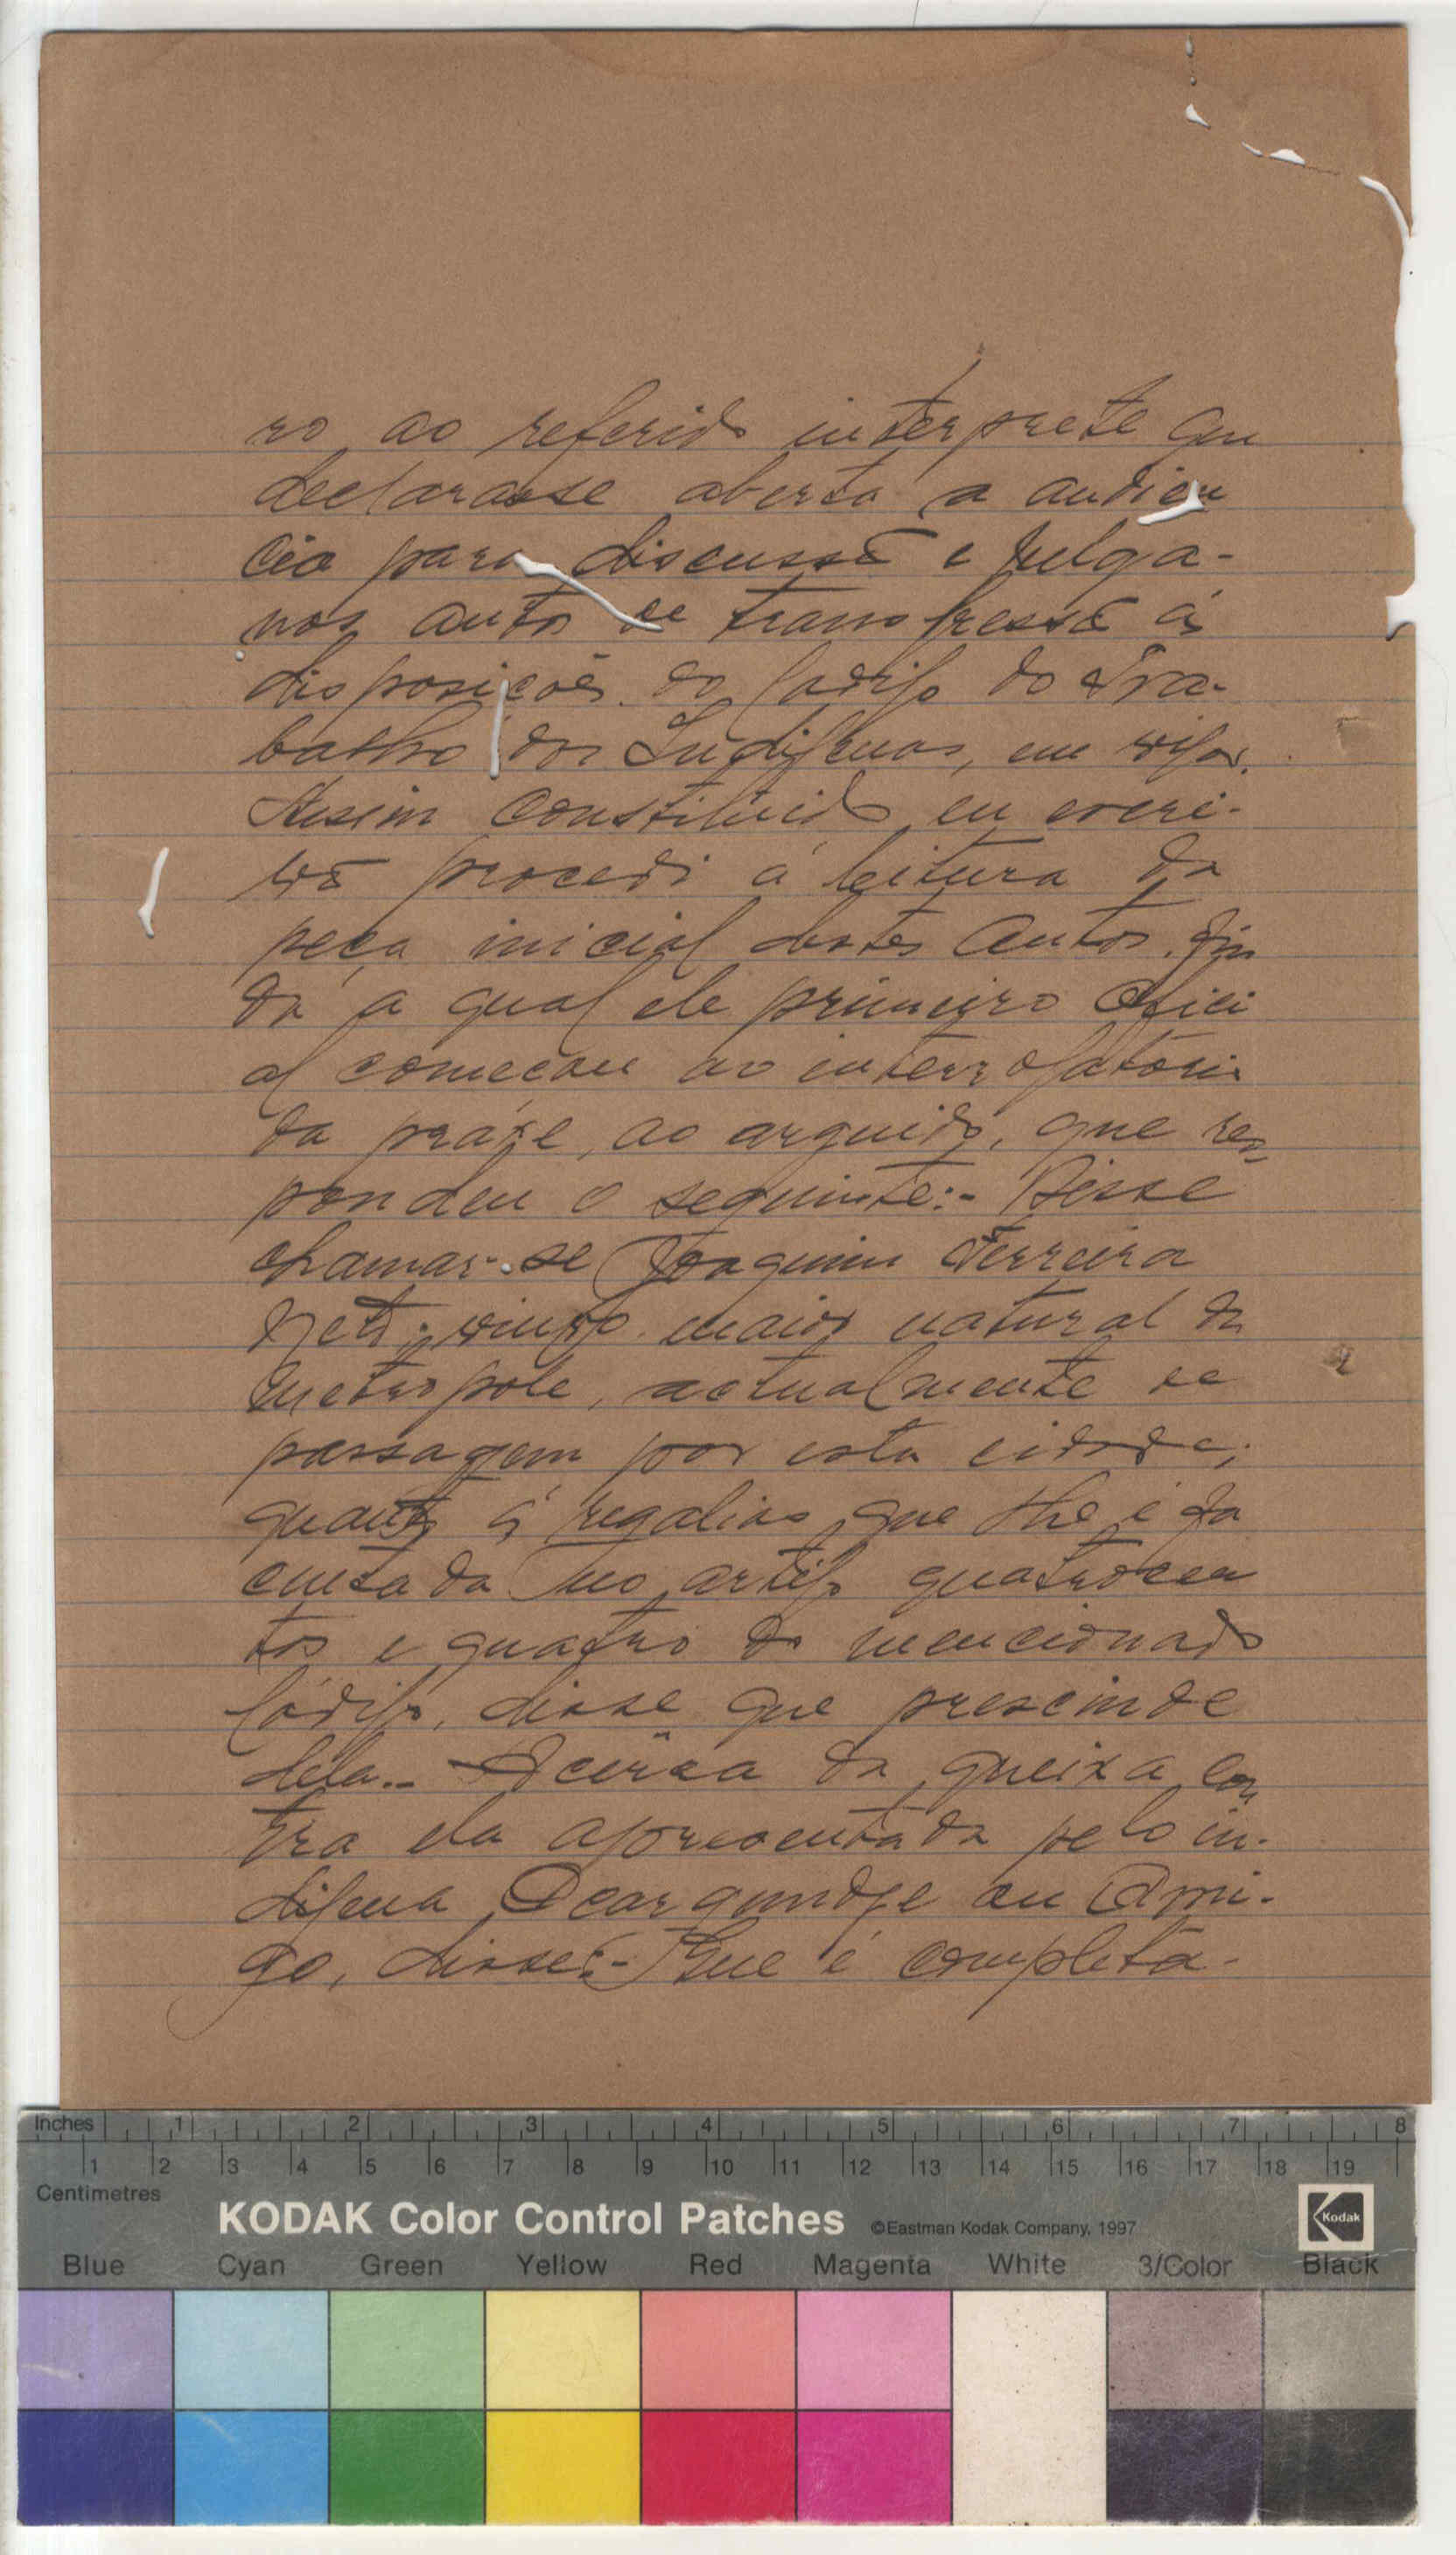 ro ao referido interprete que
declarasse aberta a audien
cia para discussã e julga-
nos autos de transfressã ás
disposições do Codigo do Tra-
balho dos Indigenas, em vigor.
Assim constituido eu escri-
vã procedi á leitura da
peça inicial destes autos. fin
da a qual ele primeiro ofici
al começou ao interrogatório
da praxe, ao arguido, que res
pondeu o seguinte:- Disse
chamar-se Joaquim Ferreira
Neto, viuvo maior natural da
Metropole, actualmente de
passagem por esta cidade;
quanto á regalias que lhe é fa
cultada no artigo quatrocen
tos e quatro do mencionado
Código, disse que prescinde
dela.- Acêrca da queixa con
tra ela apresentada pelo in-
digena Acar gundje ou Ami-
go, disse:- Que é completa-
Inches 1 2 3 4 5 6 7 8
1 2 3 4 5 6 7 8 9 10 11 12 13 14 15 16 17 18 19
Centimetres
KODAK Color Control Patches ©Eastman Kodak Company, 1997 Kodak
Blue Cyan Green Yellow Red Magenta White 3/Color Black